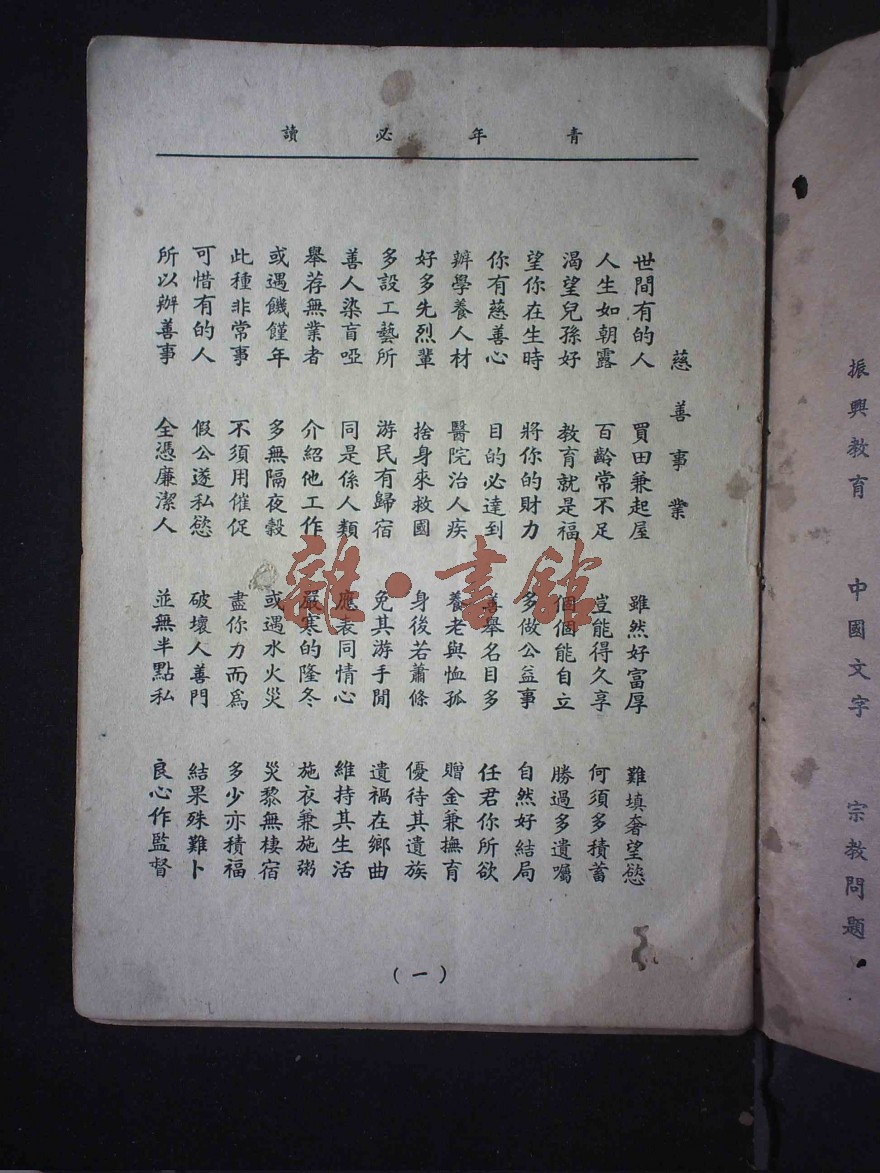 青年必讀
慈善事業
世間有的人 買田兼起屋 雖然好富厚 難填奢望慾
人生如朝露 百齡常不足 豈能得久享 何須多積蓄
渴望兒孫好 教育就是福 個個能自立 勝過多遺囑
望你在生時 將你的財力 多做公益事 自然好結局
你有慈善心 目的必達到 善舉名目多 任君你所欲
辦學養人材 醫院治人疾 養老與恤孤 贈金兼撫育
好多先烈輩 捨身來救國 身後若蕭條 優待其遺族
多設工藝所 游民有歸宿 免其游手閒 遺禍在鄉曲
善人染盲啞 同是係人類 應表同情心 維持其生活
舉荐無業者 介紹他工作 嚴寒的隆冬 施衣兼施粥
或遇饑饉年 多無隔夜穀 或遇水火災 災黎無棲宿
此種非常事 不須用催促 盡你力而為 多少亦積福
可惜有的人 假公遂私慾 破壞人善門 結果殊難卜
所以辦善事 全憑廉潔人 並無半點私 良心作監督
(一)
振興教育 中國文字 宗教問題
雜·書館